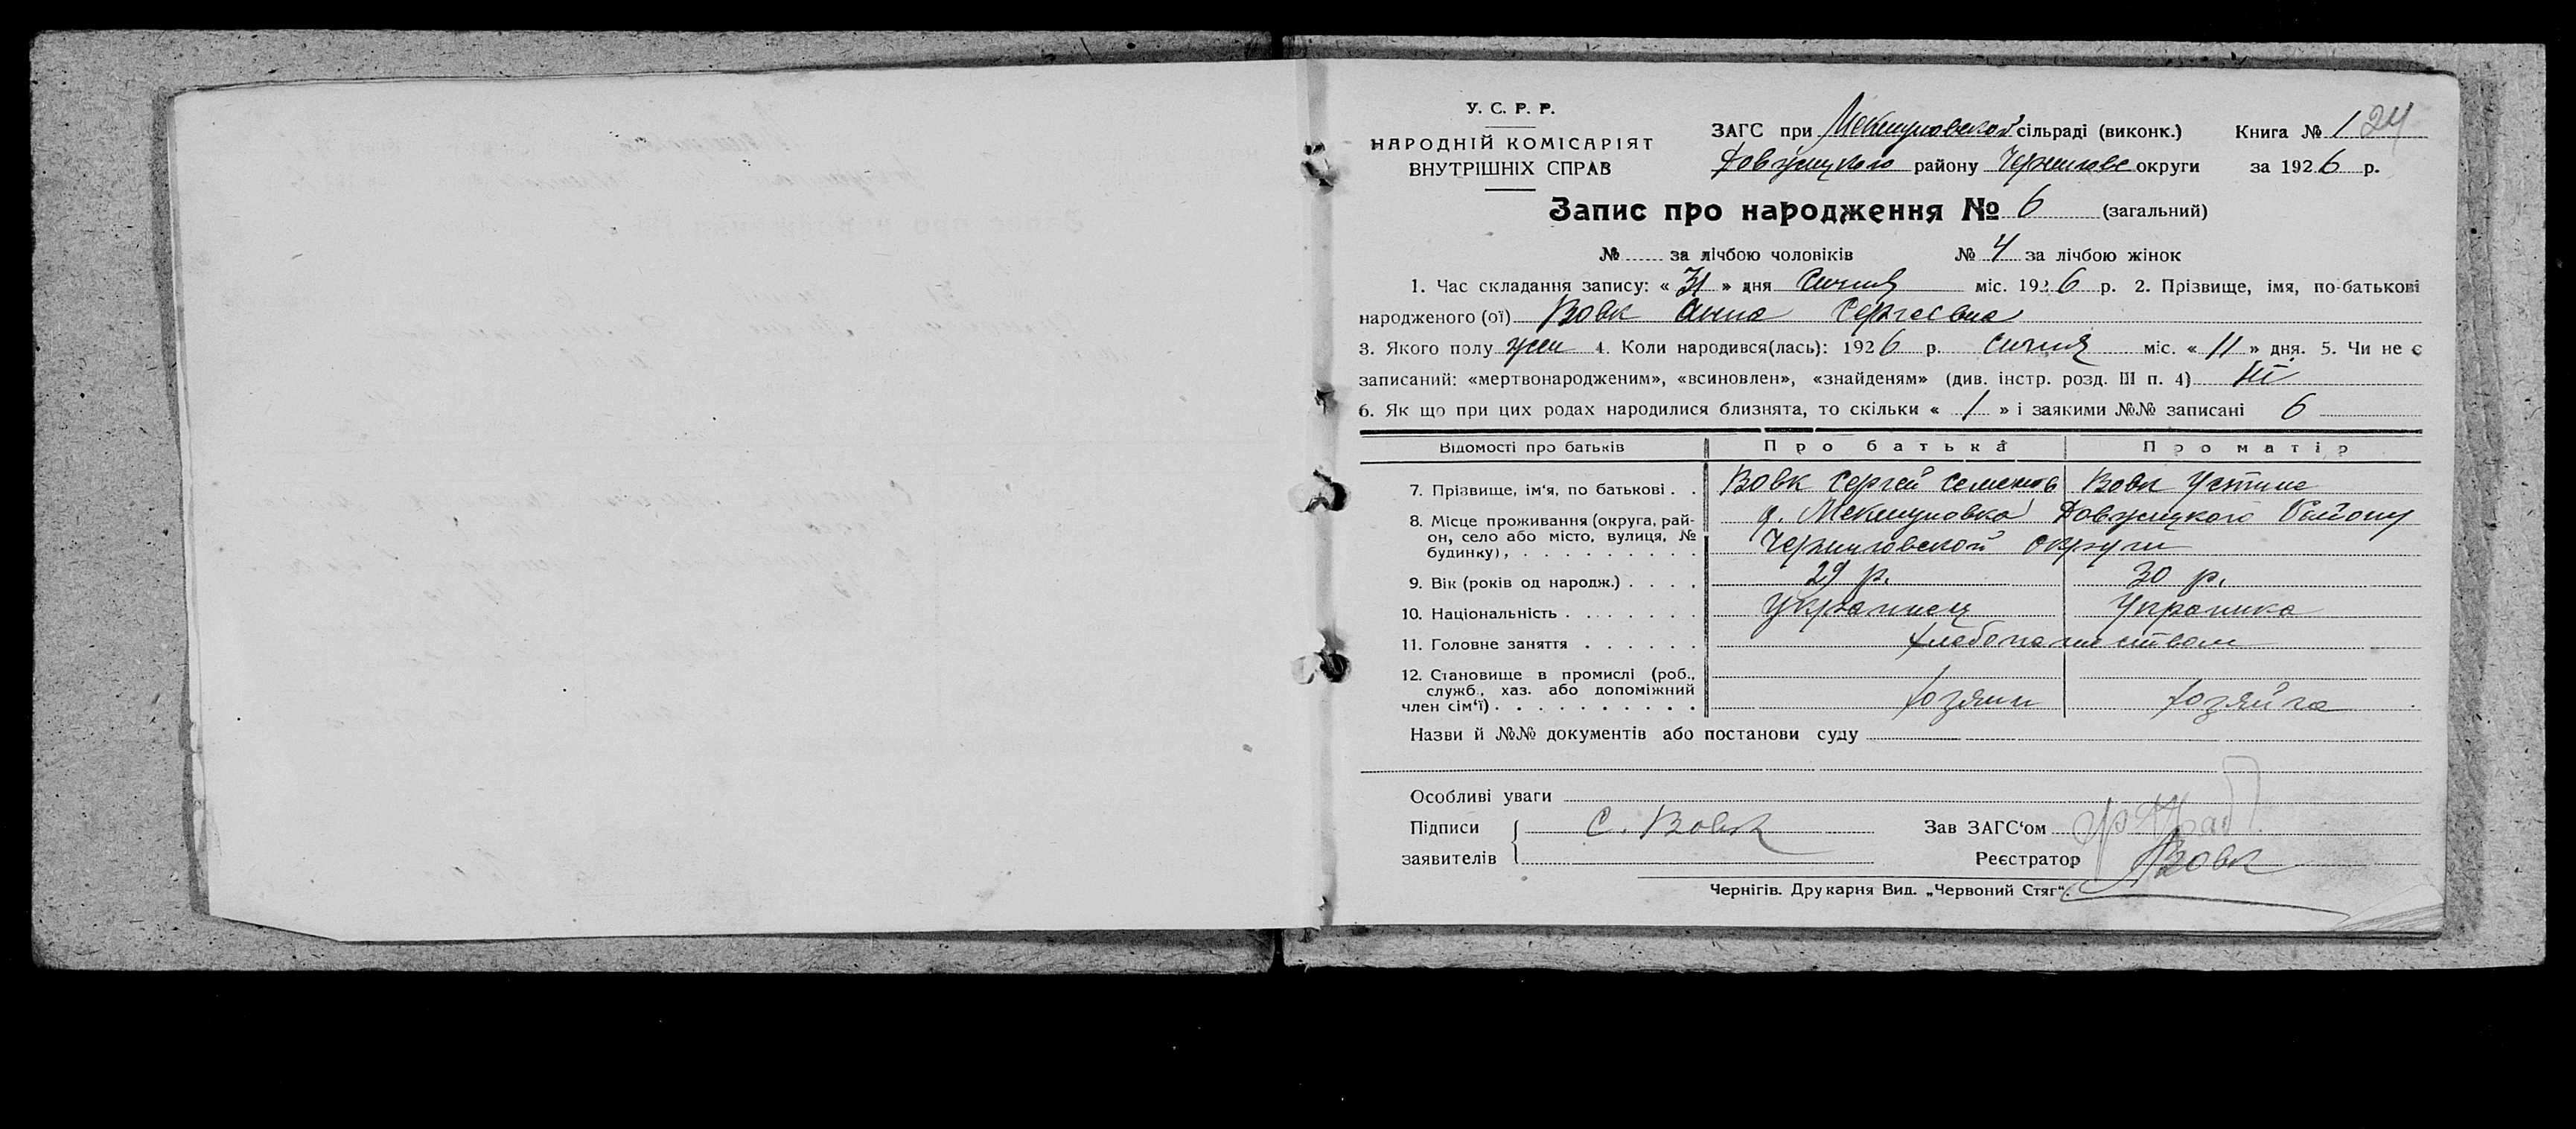 У. С. Р. Р.
НАРОДНІЙ КОМІСАРІЯТ
ВНУТРІШНІХ СПРАВ
ЗАГС при Мекшуновской сільраді (виконк.) Книга № 1 24
Довжицкого району Чернигове округи за 1926 р.
Запис про народження № 6 (загальний)
№ за лічбою чоловіків № 4 за лічбою жінок
1. Час складання запису: « 31 » дня Сичня міс. 1926 р. 2. Прізвище, імя, по-батькові
народженого (ої) Вовк Анна Сергеевна
3. Якого полу жен 4. Коли народився(лась): 1926 р. сичня міс. « 11 » дня. 5. Чи не є
записаний: «мертвонародженим», «всиновлен», «знайденям» (див. інстр. розд. III п. 4) Ні
6. Як що при цих родах народилися близнята, то скільки « 1 » і заякими №№ записані 6
Відомості про батьків Про батька Про матір
7. Прізвище, ім'я, по батькові . . Вовк Сергей Семенов Вовк Устина
8. Місце проживання (округа, рай-
он, село або місто, вулиця, №
будинку), . . . . . . . . . .
д. Мекшуновка Довжицкого Району
Черниговской округи
9. Вік (років од народж.) . . . . 29 р. 30 р.
10. Національність . . . . . . . Украинец Украинка
11. Головне заняття . . . . . . хлебопашеством
12. Становище в промислі (роб.,
служб., хаз. або допоміжний
член сім'ї) . . . . . . . . . . хозяин хозяйка
Назви й №№ документів або постанови суду
Особливі уваги
Підписи С. Вовк Зав ЗАГС'ом
заявителів Реєстратор Вовк
Чернігів. Друкарня Вид. „Червоний Стяг".